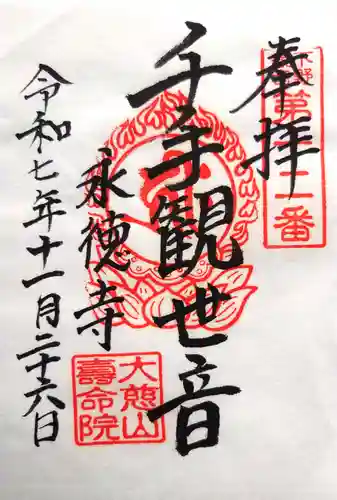 奉拝
千手観世音
永徳寺
令和七年十一月二十六日
大慈山
壽命院